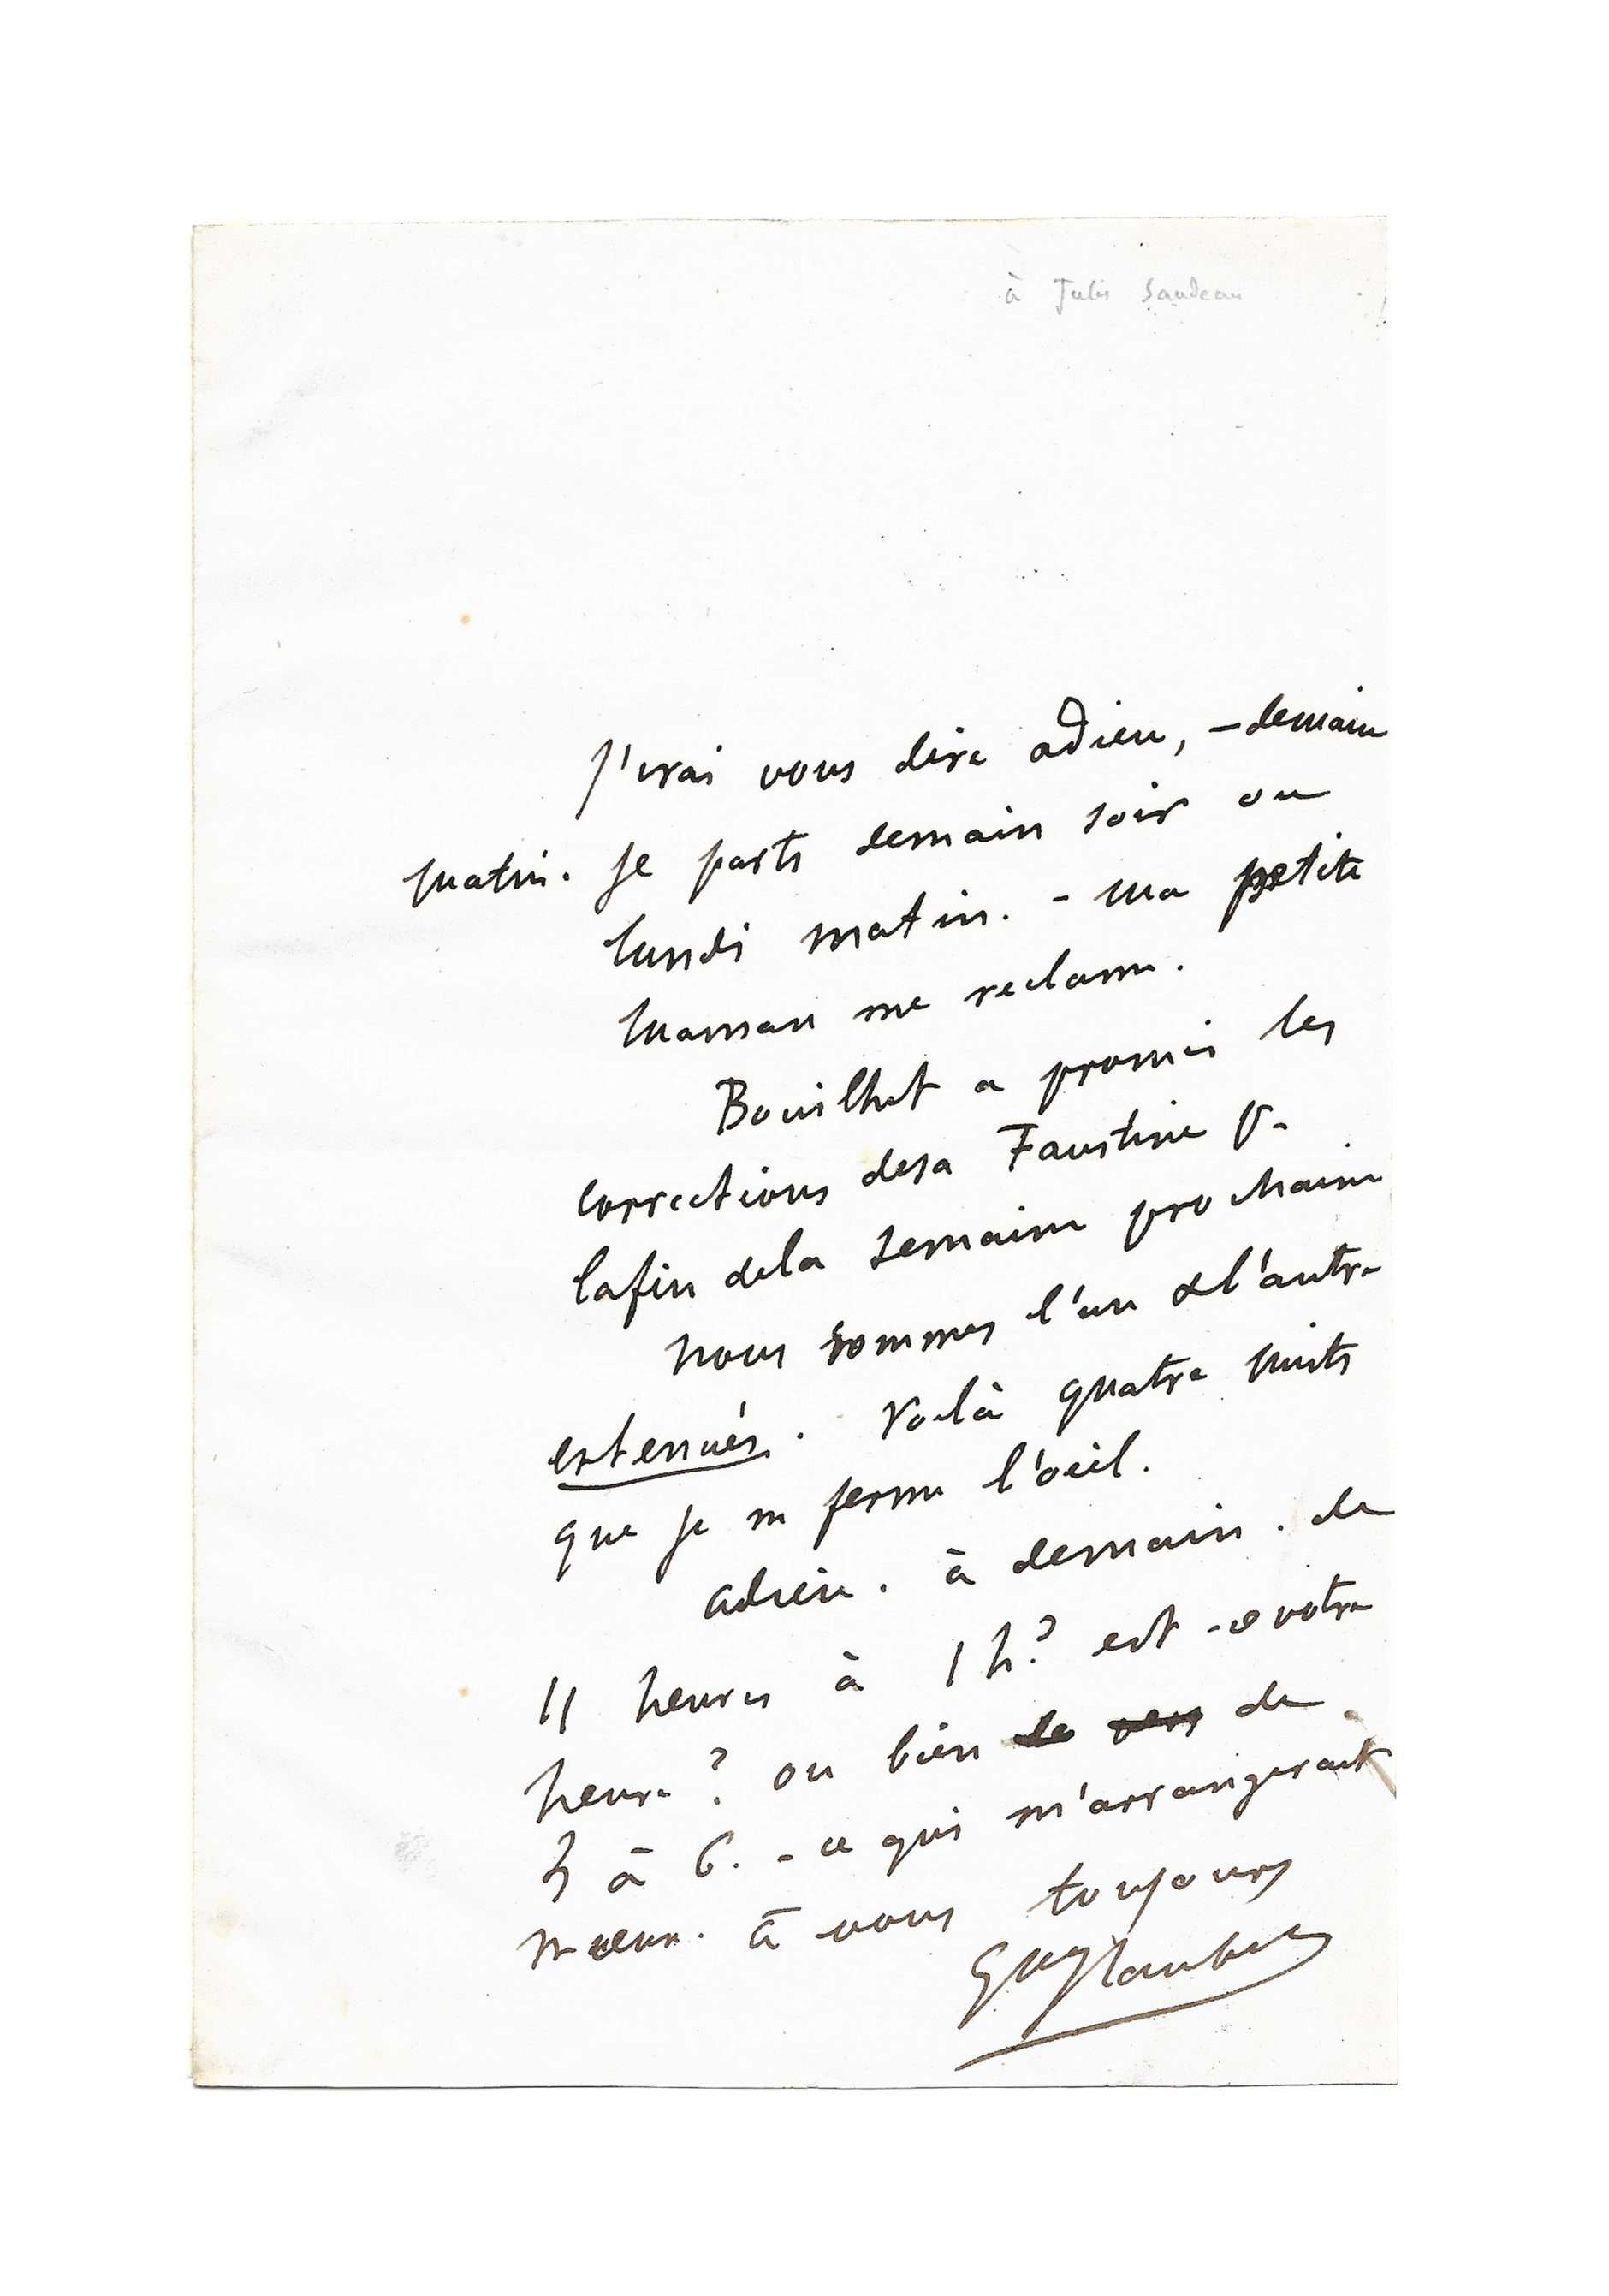 à Jules Sandeau
J'irai vous dire adieu, – demain
matin. je parts demain soir ou
lundi matin. - ma petite
maman me réclame.
Bouilhet a promis les
corrections desa Faustine p.
lafin dela semaine prochaine
nous sommes l'un & l'autre
extenués. Voilà quatre nuits
que je ne ferme l'oeil.
adieu. à demain. de
11 heures à 1 h? est-ce votre
heure? ou bien de
5 à 6. - ce qui m'arrangerait
mieux. à vous toujours
Gve Flaubert